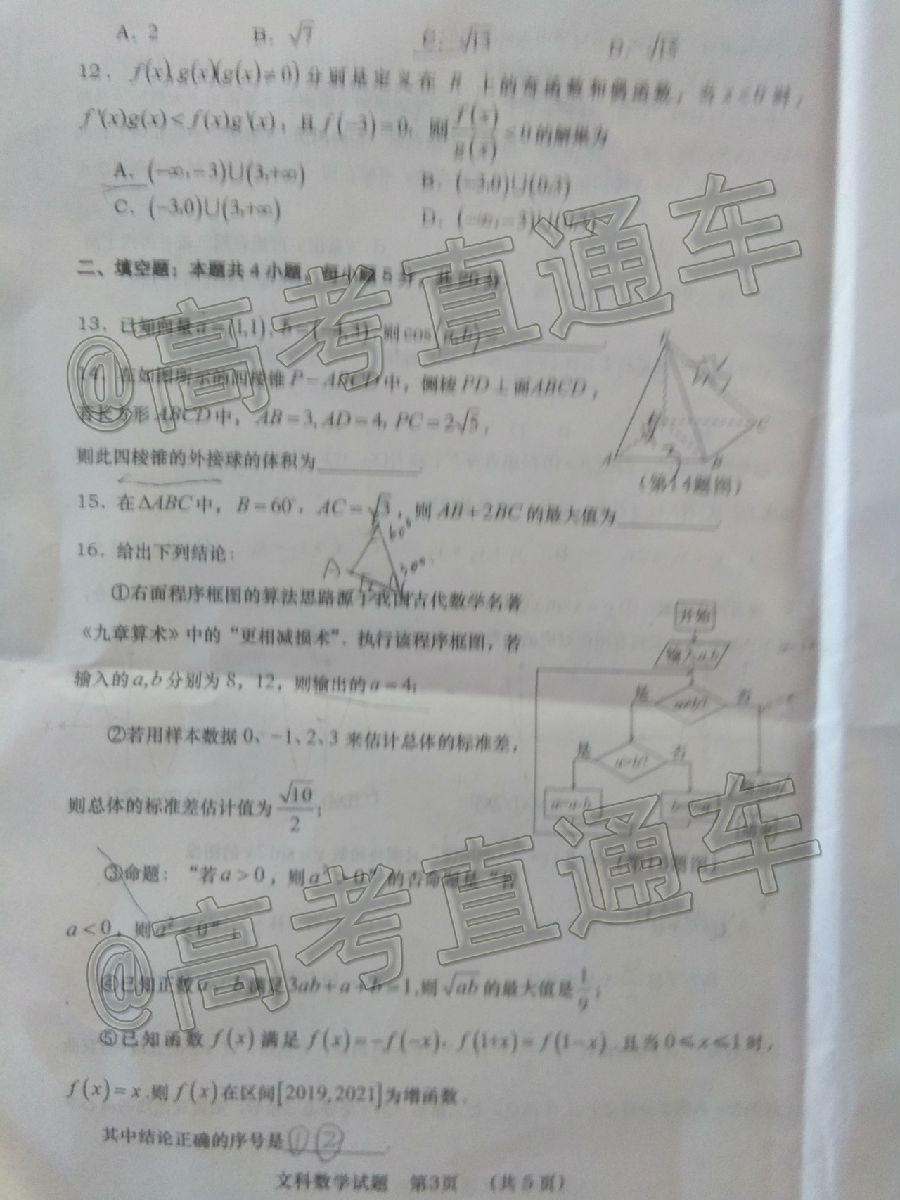 A、2 B、√7 C、√13 D、
12. f(x),g(x)(g(x)≠0)分别是定义在 R 上的奇函数和偶函数，当x<0时，
f'(x)g(x)<f(x)g'(x)，且f(-3)=0，则f(x)/g(x)<0的解集为
A、(-∞,-3)∪(3,+∞) B、(-3,0)∪(0,3)
C、(-3,0)∪(3,+∞) D、(-∞,-3)∪(0,3)
二、填空题：本题共4小题，每小题5分，共20分
13．已知向量a=(1,1), 则cos
14．在如图所示的四棱锥P-ABCD中，侧棱PD⊥面ABCD，
若长方形ABCD中，AB=3, AD=4, PC=2√5，
则此四棱锥的外接球的体积为
(第14题图)
15．在ΔABC中，B=60°，AC=√3，则AB+2BC的最大值为
60°
A 30°
16．给出下列结论：
①右面程序框图的算法思路源于我国古代数学名著
《九章算术》中的“更相减损术”．执行该程序框图，若
输入的a,b分别为8，12，则输出的a=4；
②若用样本数据0、-1、2、3来估计总体的标准差，
则总体的标准差估计值为√10/2；
开始
输入a,b
是 否
a≠b?
是 否
a>b?
a=a-b
③命题：“若a>0，则 的否命题是“若
a<0，则a²
④已知正数a，b满足3ab+a+b=1,则√ab的最大值是1/9；
⑤已知函数f(x)满足f(x)=-f(-x)，f(1+x)=f(1-x)，且当0≤x≤1时，
f(x)=x.则f(x)在区间[2019,2021]为增函数．
其中结论正确的序号是①②
文科数学试题 第3页 (共5页)
@高考直通车
@高考直通车